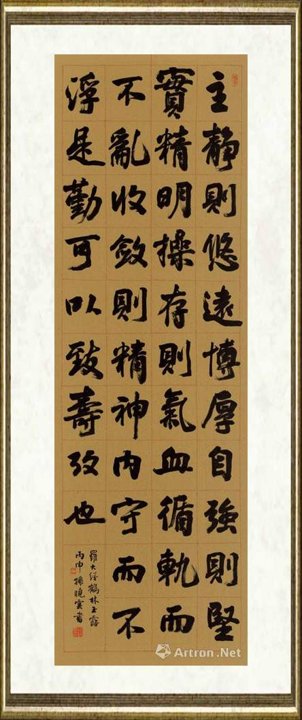 主靜則悠遠博厚自強則堅
實精明操存則氣血循軌而
不亂收斂則精神內守而不
浮是勤可以致壽攷也
羅大經鶴林玉露
丙申孫曉雲書
Artron.Net